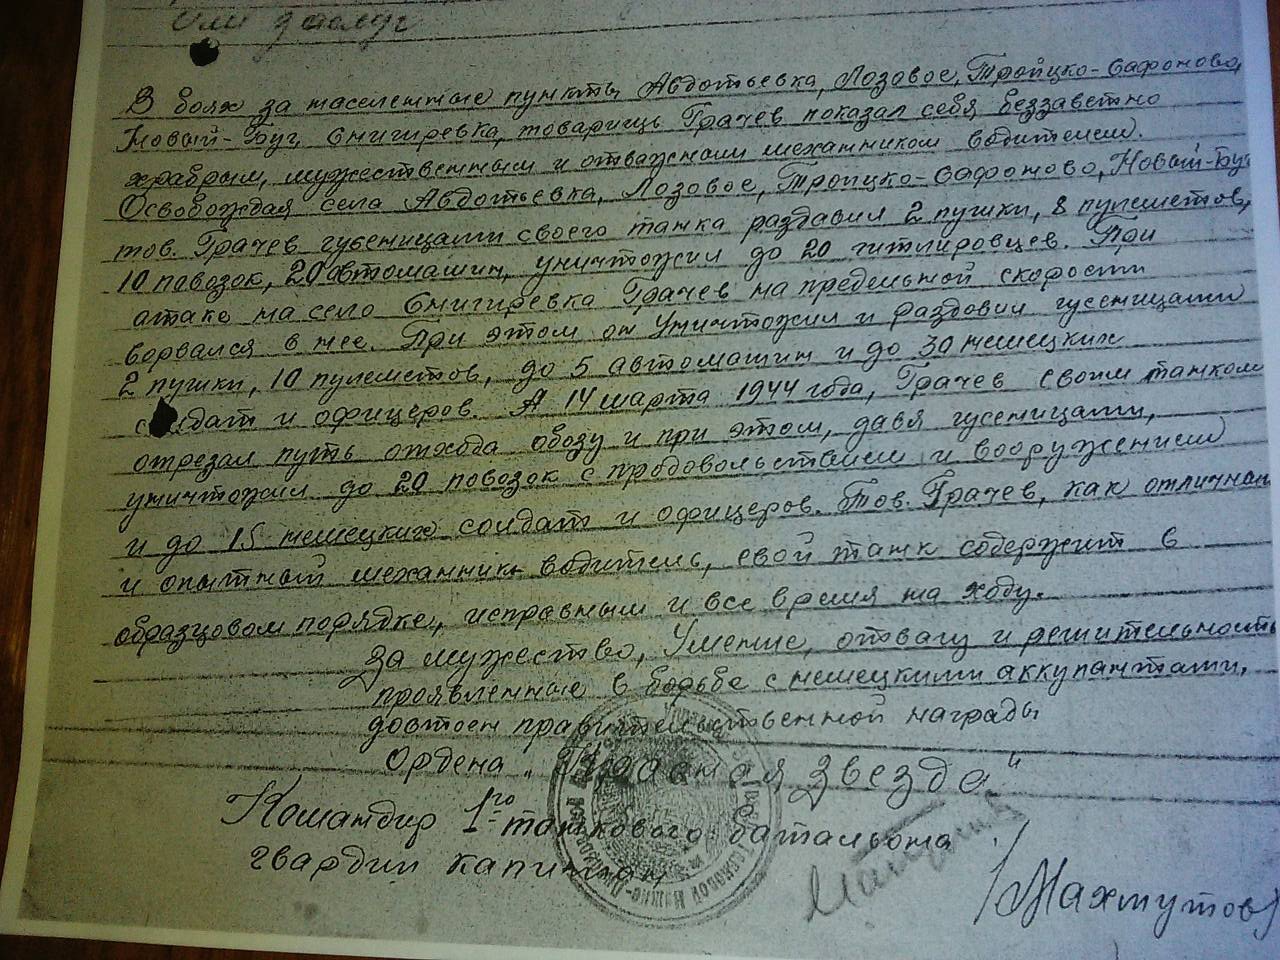 или заслуг
В боях за населенные пункты Авдотьевка, Лозовое, Троицко-Сафоново,
Новый-Буг, Снигиревка, товарищь Грачев показал себя беззаветно
храбрым, мужественным и отважным механиком водителем.
Освобождая села Авдотьевка, Лозовое, Троицко-Сафоново, Новый-Буг
тов. Грачев гусеницами своего танка раздавил 2 пушки, 8 пулеметов,
10 повозок, 20 автомашин, уничтожил до 20 гитлировцев. При
атаке на село Снигиревка Грачев на предельной скорости
ворвался в нее. При этом он уничтожил и раздовил гусеницами
2 пушки, 10 пулеметов, до 5 автомашин и до 30 немецких
солдат и офицеров. А 14 марта 1944 года, Грачев своим танком
отрезал путь отхода обозу и при этом, давя гусеницами,
уничтожил до 20 повозок с продовольствием и вооружением
и до 15 немецких солдат и офицеров. Тов. Грачев, как отличный
и опытный механик водитель, свой танк содержит в
образцовом порядке, исправным и все время на ходу.
За мужество, умение, отвагу и решительность
проявленные в борьбе с немецкими аккупантами,
достоен правительственной награды
Ордена „Красная Звезда"
Командир 1го танкового батальона
гвардии капитан /Махмутов/